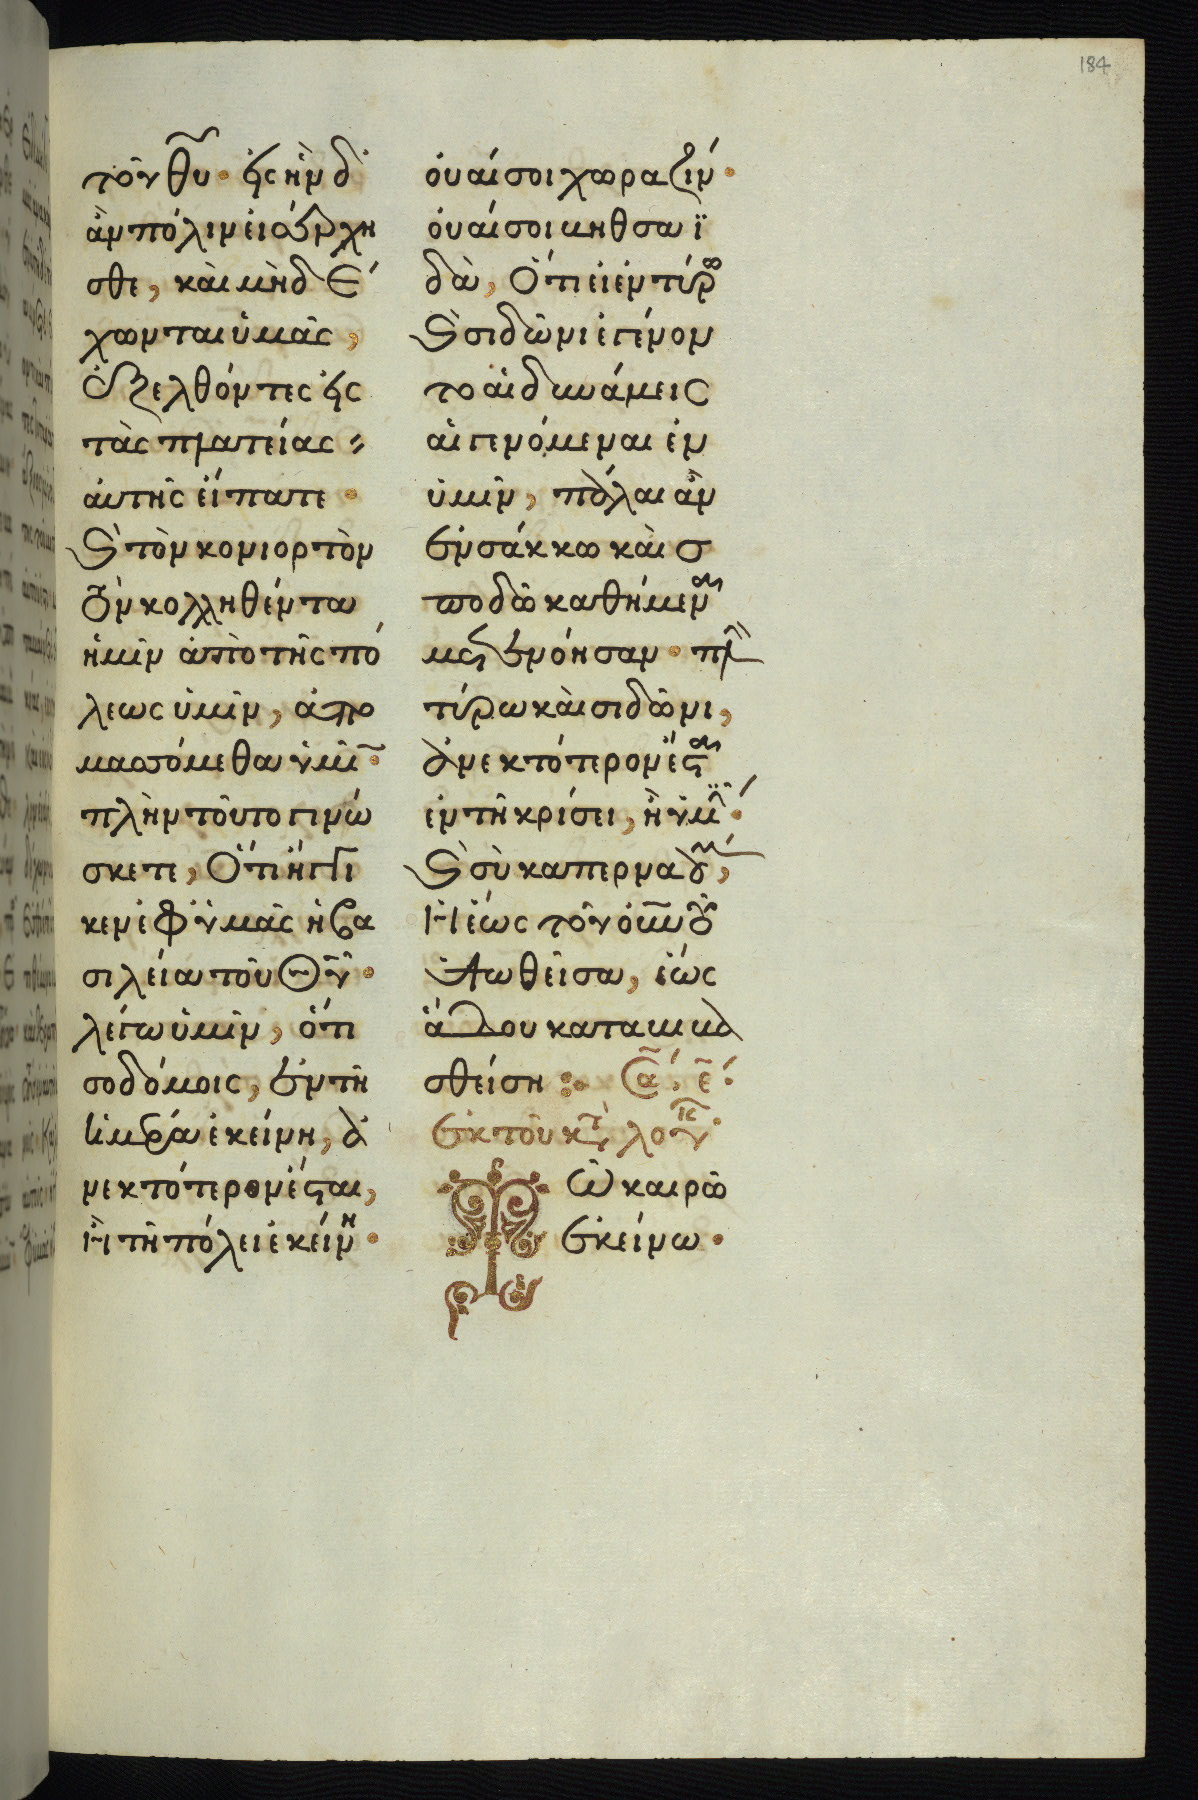 184
τοῦ θυ· εἰς ἣν δ'
ἂν πόλιν εἰσέρχη
σθε, καὶ μὴ δέ
χωνται ὑμᾶς,
ἐξελθόντες εἰς
τὰς πλατείας
αὐτῆς εἴπατε·
καὶ τὸν κονιορτὸν
τὸν κολληθέντα
ἡμῖν ἀπὸ τῆς πό
λεως ὑμῶν, ἀπο
μασσόμεθα ὑμῖν·
πλὴν τοῦτο γινώ
σκετε, ὅτι ἤγγι
κεν ἐφ' ὑμᾶς ἡ βα
σιλεία τοῦ θυ·
λέγω ὑμῖν, ὅτι
σοδόμοις, ἐν τῇ
ἡμέρα ἐκείνη, ἀ
νεκτότερον ἔσται,
ἢ τῇ πόλει ἐκείνη·
οὐαί σοι χωραζίν·
οὐαί σοι βηθσαϊ
δὰ, ὅτι εἰ ἐν τύρω
καὶ σιδῶνι ἐγένον
το αἱ δυνάμεις
αἱ γενόμεναι ἐν
ὑμῖν, πάλαι ἂν
ἐν σάκκω καὶ σ
ποδῶ καθήμεναι
μετενόησαν· πλὴν
τύρω καὶ σιδῶνι,
ἀνεκτότερον ἔσται
ἐν τῇ κρίσει, ἢ ὑμῖν·
καὶ σὺ καπερναούμ,
ἡ ἕως τοῦ οὐνοῦ
ὑψωθεῖσα, ἕως
ἅδου καταβιβα
σθείση: Σα. ε̄:
ἐκ τοῦ κτ λουκ
Τῶ καιρῶ
ἐκείνω·